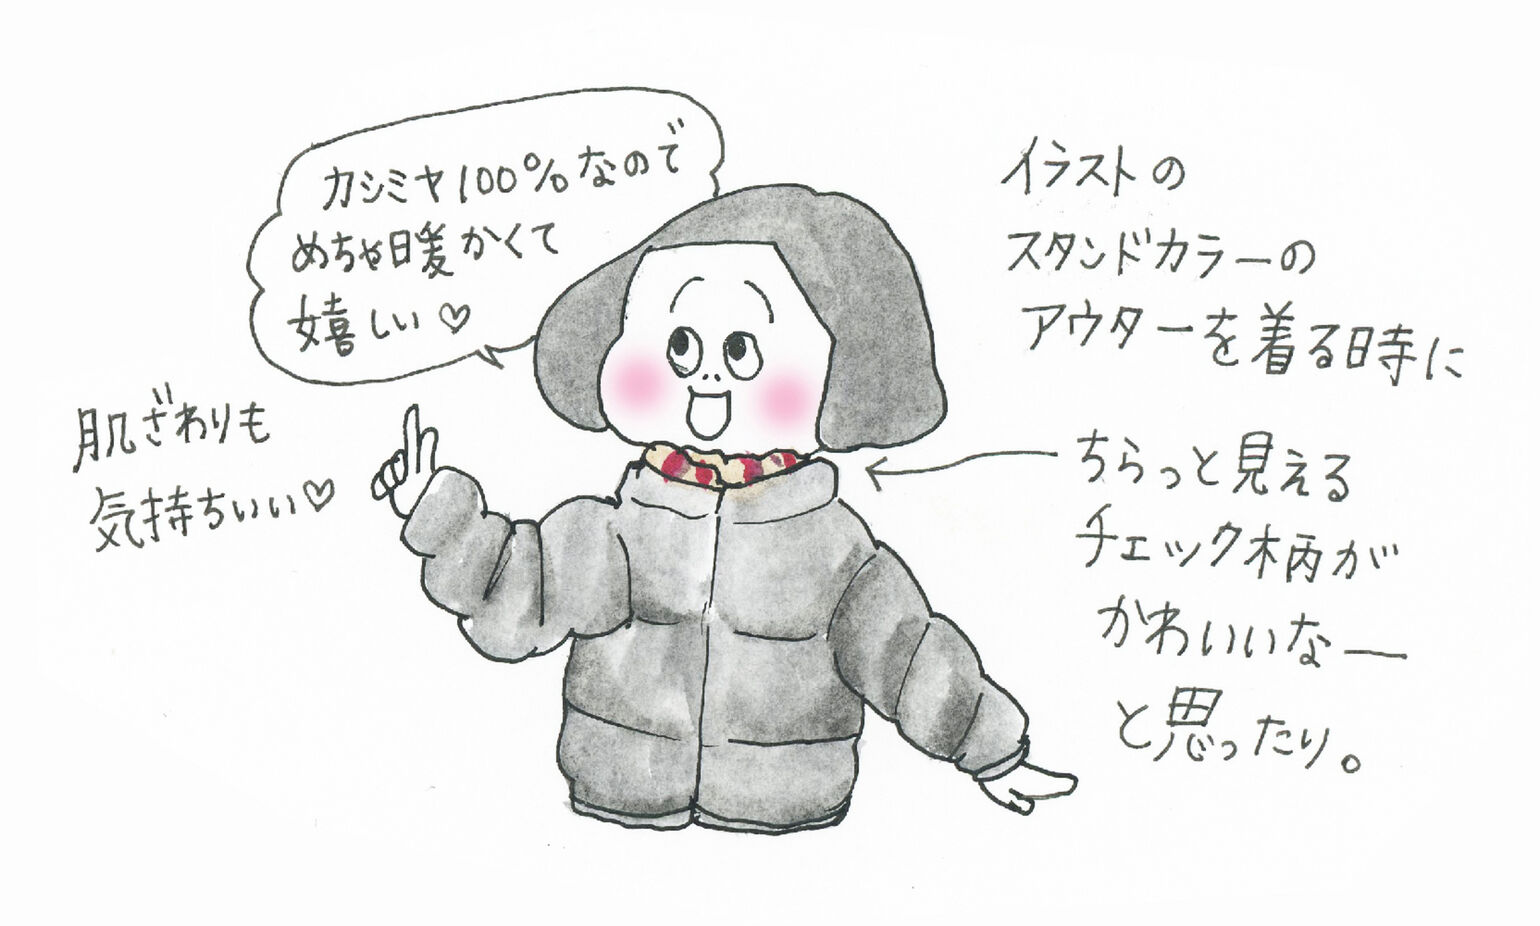 カシミヤ100%なので
めちゃ暖かくて
嬉しい♡
肌ざわりも
気持ちいい♡
イラストの
スタンドカラーの
アウターを着る時に
ちらっと見える
チェック柄が
かわいいなー
と思ったり。